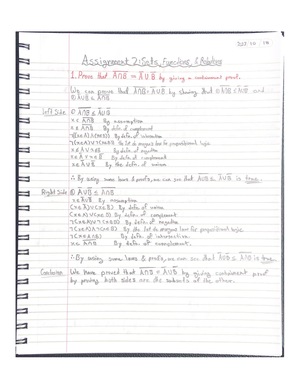 Assignment 2: Sets, Functions, & Relations
1. Prove that A̅∩̅B̅ = A̅ ∪ B̅ by giving a containment proof.
We can prove that A̅∩̅B̅ = A̅∪B̅ by showing that ① A̅∩̅B̅ ⊆ A̅∪B̅ and
② A̅∪B̅ ⊆ A̅∩̅B̅
Left Side ① A̅∩̅B̅ ⊆ A̅∪B̅
x ∈ A̅∩̅B̅ By assumption
x ∉ A∩B By defn. of complement
By defn. of intersection
By the 1st de morgans law for propositional logic
By defn. of negation
By defn. of complement
x ∈ A̅∪B̅ By the defn. of union
∴ By using some laws & proofs, we can see that A̅∩̅B̅ ⊆ A̅∪B̅ is true.
Right Side ② A̅∪B̅ ⊆ A̅∩̅B̅
x ∈ A̅∪B̅ By assumption
(x ∈ A̅) ∨ (x ∈ B̅) By defn. of union
(x ∉ A) ∨ (x ∉ B) By defn. of complement
¬(x ∈ A) ∨ ¬(x ∈ B) By defn. of negation
By the 1st de morgans law for propositional logic
By defn. of intersection
x ∈ A̅∩̅B̅ By defn. of complement.
∴ By using some laws & proofs, we can see that A̅∪B̅ ⊆ A̅∩̅B̅ is true
Conclusion We have proved that A̅∩̅B̅ = A̅∪B̅ by giving containment proof
by proving both sides are the subsets of the other.